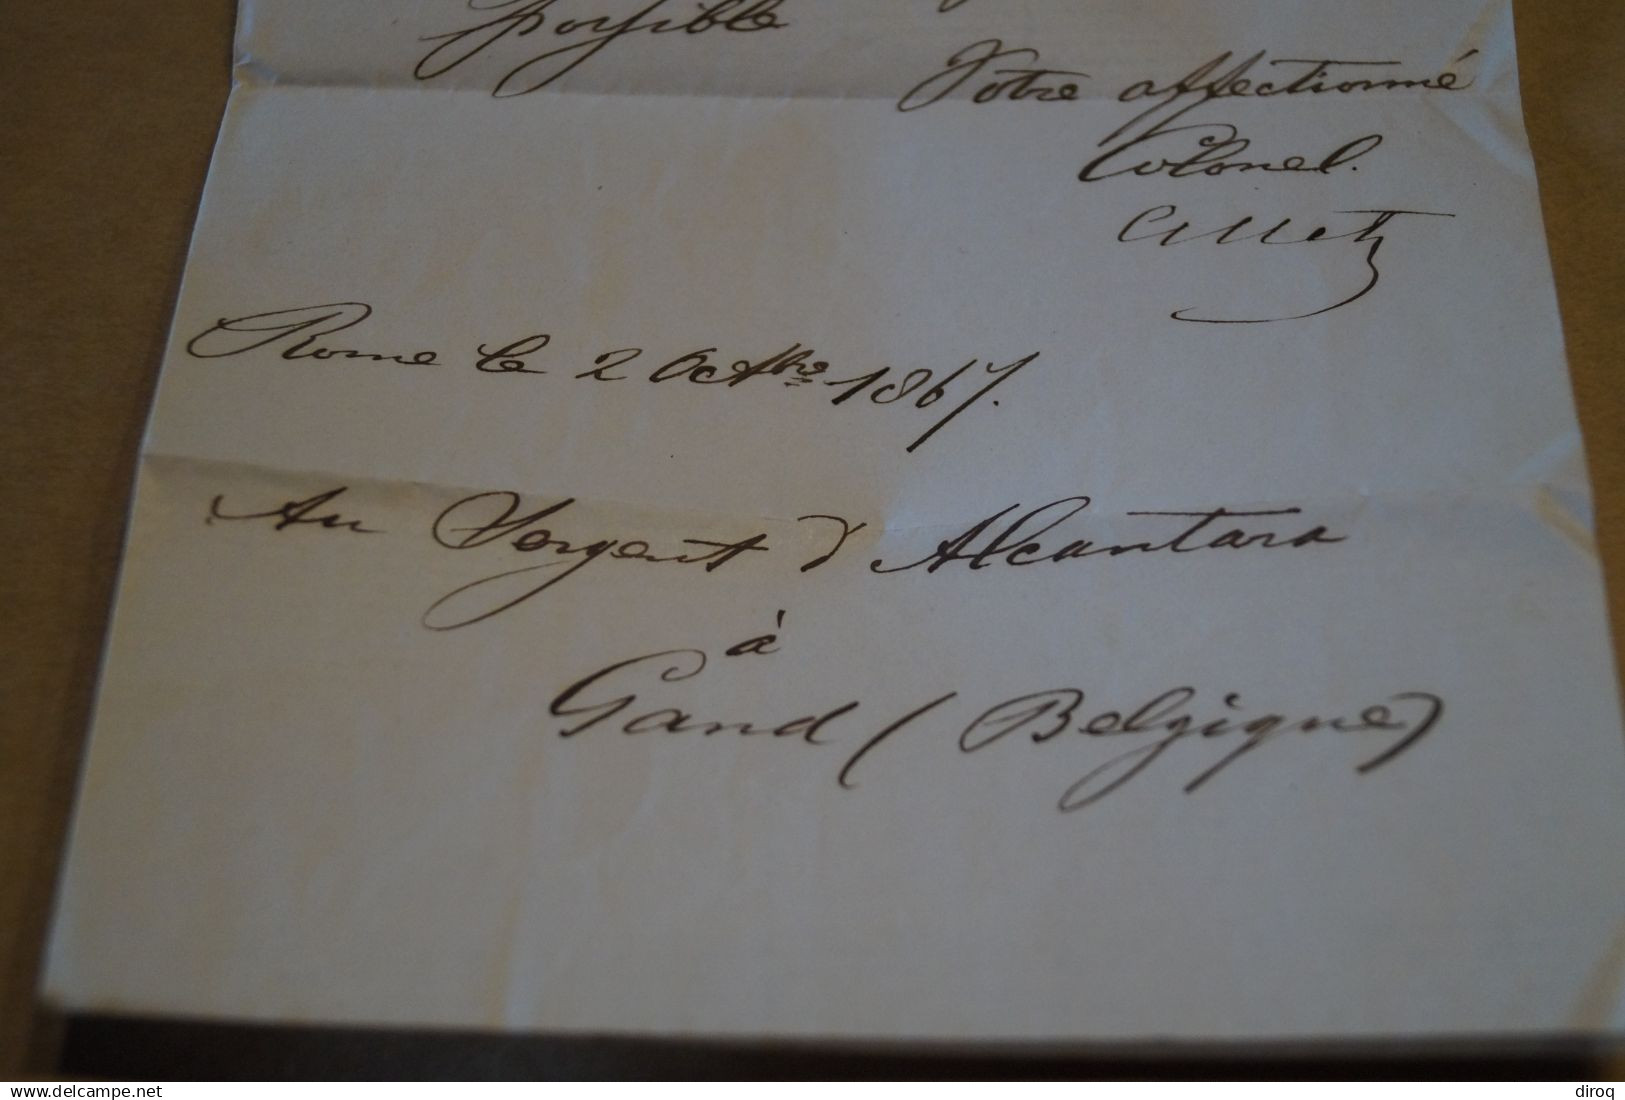 possible
Votre affectionné
Colonel.
Allet
Rome le 2 Octbre 1867.
Au Sergent d'Alcantara
à
Gand (Belgique)
delcampe.net
diroq